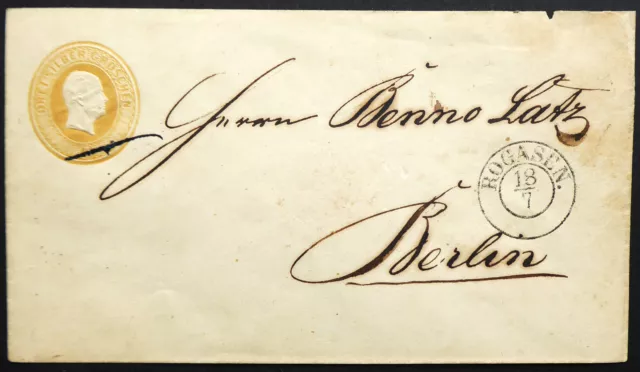 DREI SILBER GROSCHEN
Herrn Benno Latz
ROGASEN.
18
7
Berlin